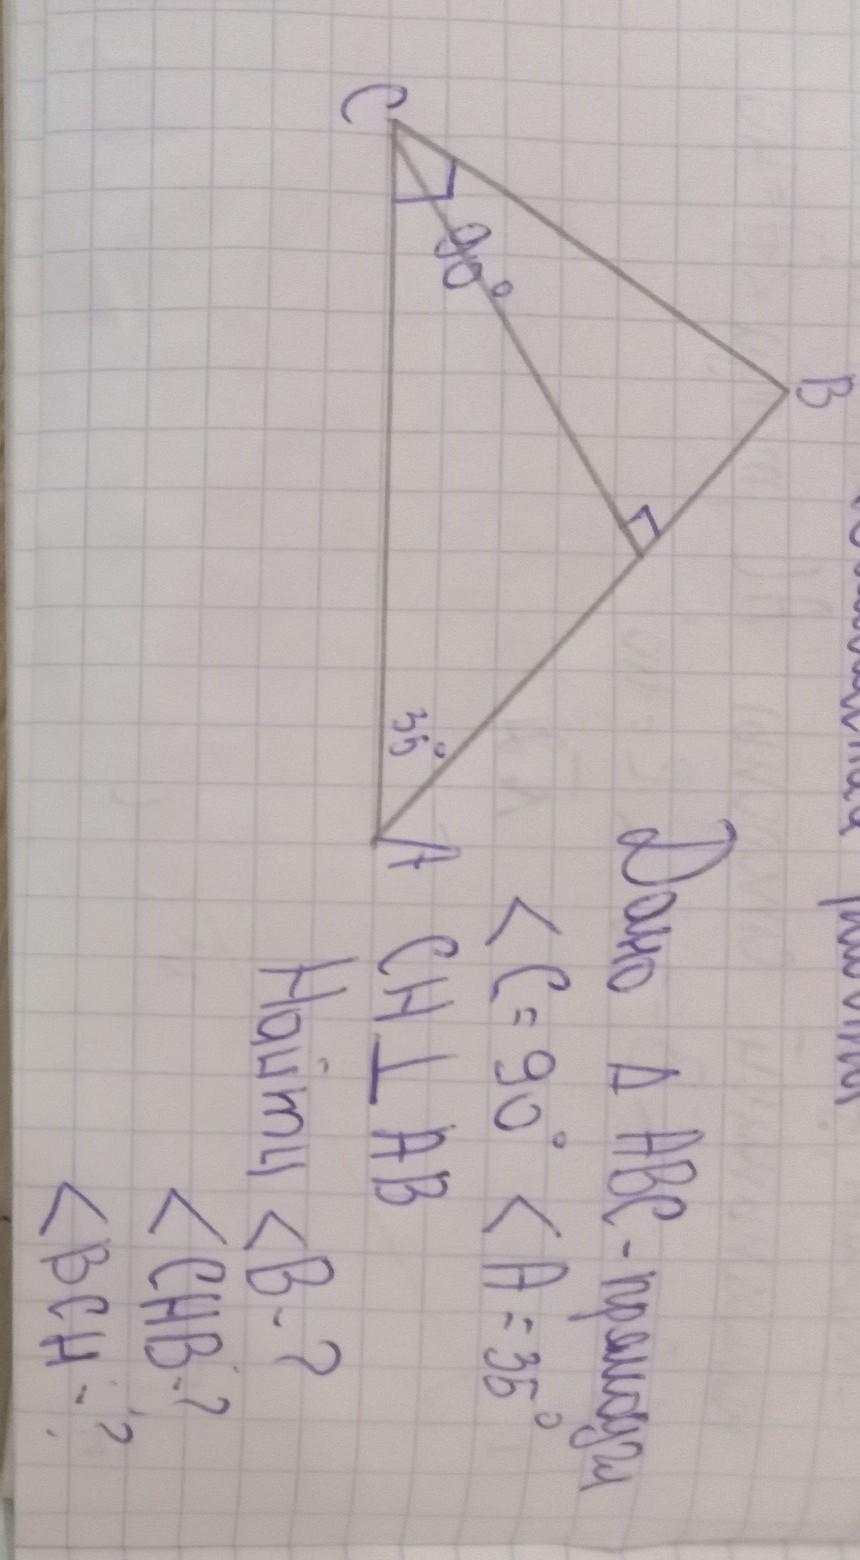 C
B
90°
35°
A
Дано Δ ABC - прямоуг
< C = 90° < A = 35°
CH ⊥ AB
Найти < B - ?
< CHB - ?
< BCH - ?